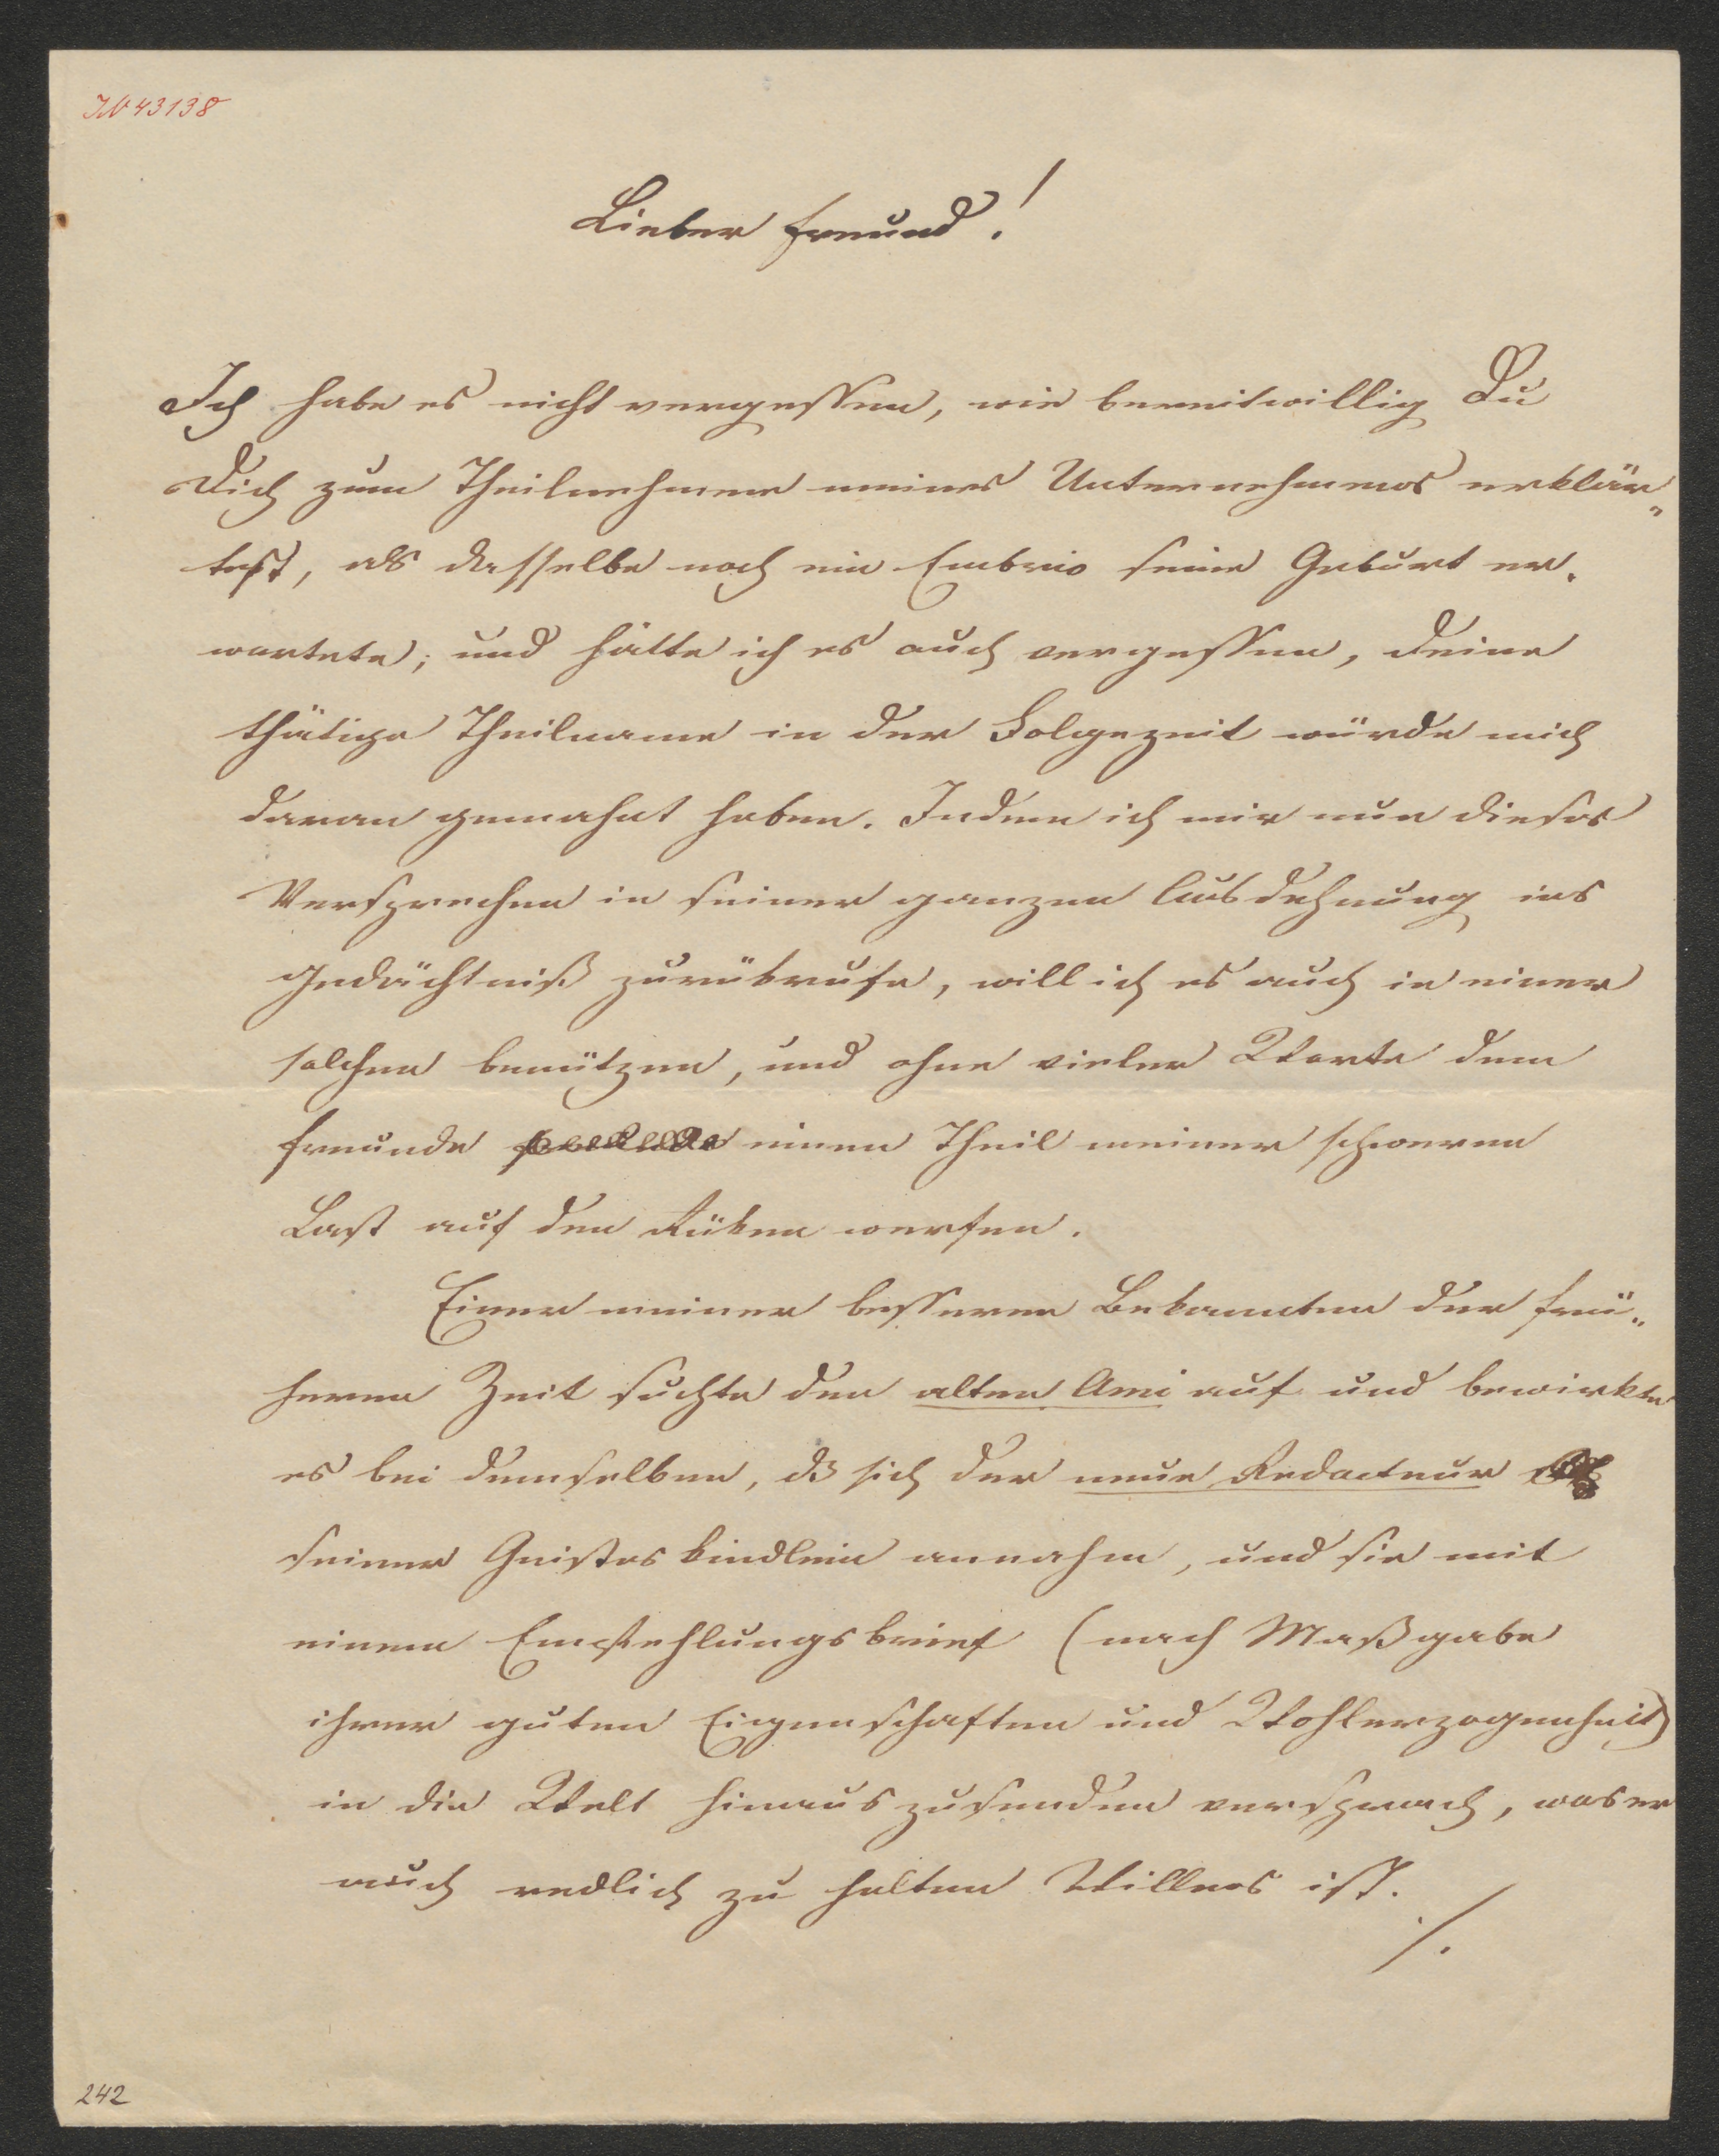 IN 43138
Lieber Freund!
Ich habe es nicht vergessen, wie bereitwillig Du
Dich zum Theilnehmer meines Unternehmens erklär„
test, als dasselbe noch ein Embrio seine Geburt er„
wartete; und hätte ich es auch vergessen, Deine
thätige Theilname in der Folgezeit würde mich
daran gemahnt haben. Indem ich mir nun dieses
Versprechen in seiner ganzen Ausdehnung ins
Gedächtniß zurükrufe, will ich es auch in einer
solchen benützen, und ohne vieler Worte dem
Freunde einen Theil meiner schweren
Last auf den Rüken werfen.
Einer meiner besseren Bekannten der frü„
heren Zeit suchte den alten Ami auf und bewirkte
es bei demselben, dß sich der neue Redacteur
seiner Geisteskindlein annahm, und sie mit
einem Empfehlungsbrief (nach Maßgabe
ihrer guten Eigenschaften und Wohlerzogenheit)
in die Welt hinauszusenden versprach, was er
auch redlich zu halten Willens ist.
./.
242